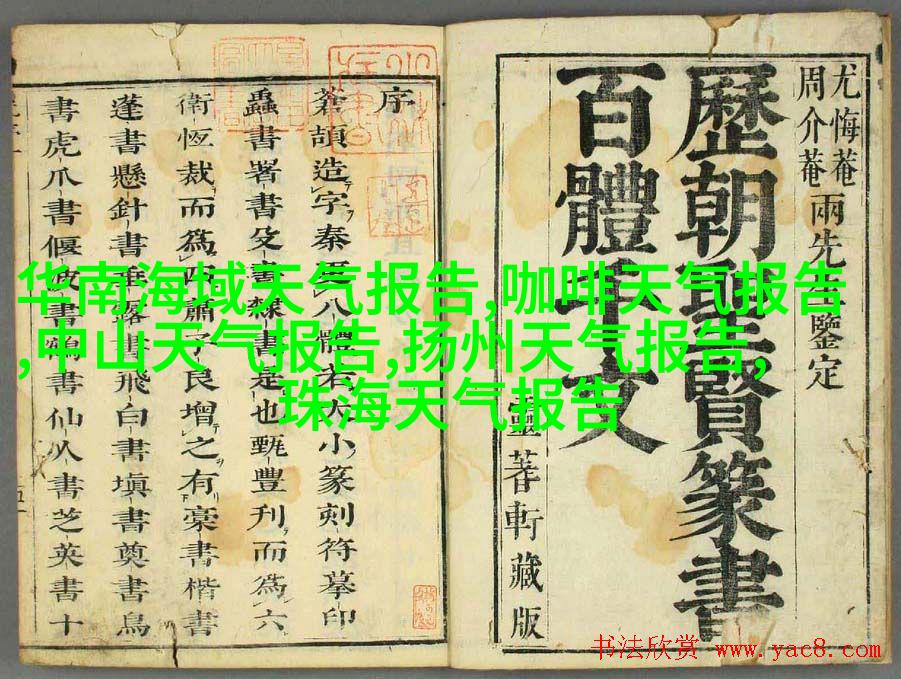 尤悔菴
周介菴
兩先生鑒定
歷朝聖賢篆書
百體千文
靈蓍軒藏版
序
蒼頡造字秦 八體若大小篆刻符摹印
蟲書署書殳書隸書是也甄豐刋而爲六
衛恆裁而爲四蕭子良增之有稾書楷書
蓬書懸針書垂露書飛白書塡書奠書鳥
書虎爪書偃波書鶴書仙人書芝英書十
华南海域天气报告,咖啡天气报告
,中山天气报告,扬州天气报告,
珠海天气报告
书法欣赏 www.yac8.com